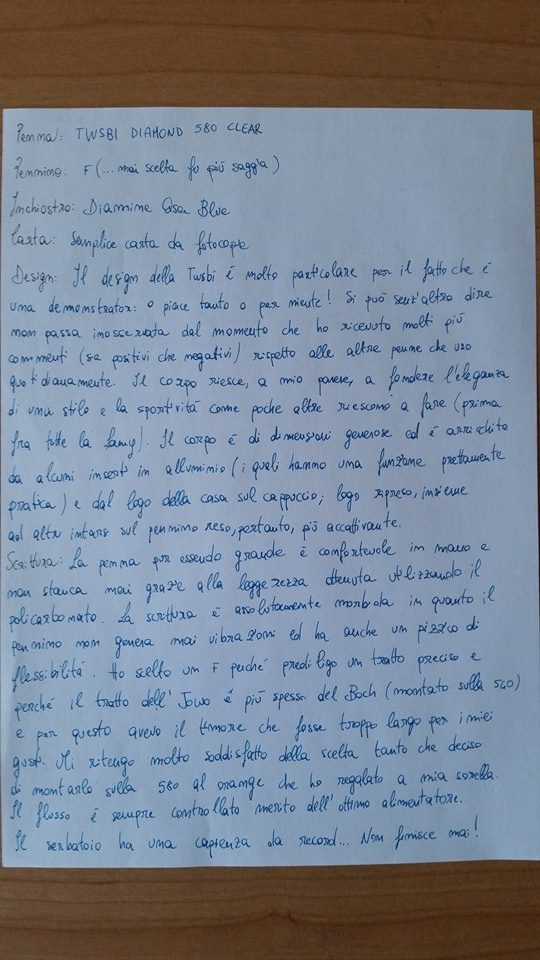 Penna: TWSBI DIAMOND 580 CLEAR
Pennino: F (... mai scelta fu più saggia)
Inchiostro: Diamine Asa Blue
Carta: Semplice carta da fotocopie
Design: Il design della Twsbi è molto particolare per il fatto che è
una demonstrator: o piace tanto o per niente! Si può senz'altro dire
non passa inosservata dal momento che ho ricevuto molti più
commenti (sia positivi che negativi) rispetto alle altre penne che uso
quotidianamente. Il corpo riesce, a mio parere, a fondere l'eleganza
di una stilo e la sportività come poche altre riescono a fare (prima
fra tutte la Lamy). Il corpo è di dimensioni generose ed è arricchito
da alcuni inserti in alluminio (i quali hanno una funzione prettamente
pratica) e dal logo della casa sul cappuccio; logo ripreso, insieme
ad altri intarsi sul pennino reso, pertanto, più accattivante.
Scrittura: La penna pur essendo grande è confortevole in mano e
non stanca mai grazie alla leggerezza ottenuta utilizzando il
policarbonato. La scrittura è assolutamente morbida in quanto il
pennino non genera mai vibrazioni ed ha anche un pizzico di
flessibilità. Ho scelto un F perché prediligo un tratto preciso e
perché il tratto dell'Jowo è più spesso del Boch (montato sulla 540)
e per questo avevo il timore che fosse troppo largo per i miei
gusti. Mi ritengo molto soddisfatto della scelta tanto che deciso
di montarlo sulla 580 al orange che ho regalato a mia sorella.
Il flusso è sempre controllato merito dell'ottimo alimentatore.
Il serbatoio ha una capienza da record... Non finisce mai!